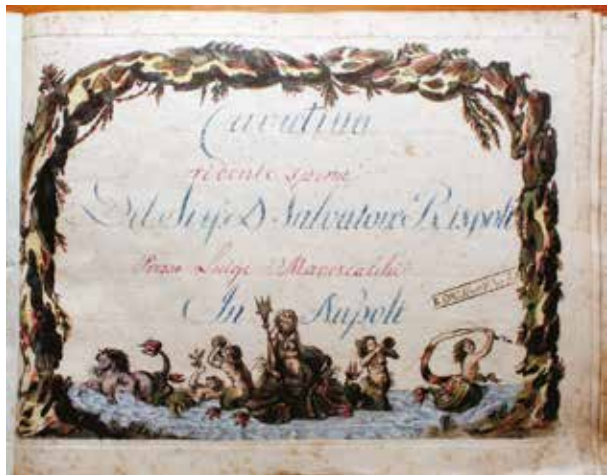 Cavatina
ridente speme
Del Sig.e D. Salvatore Rispoli
Presso Luigi Marescalchi
In Napoli